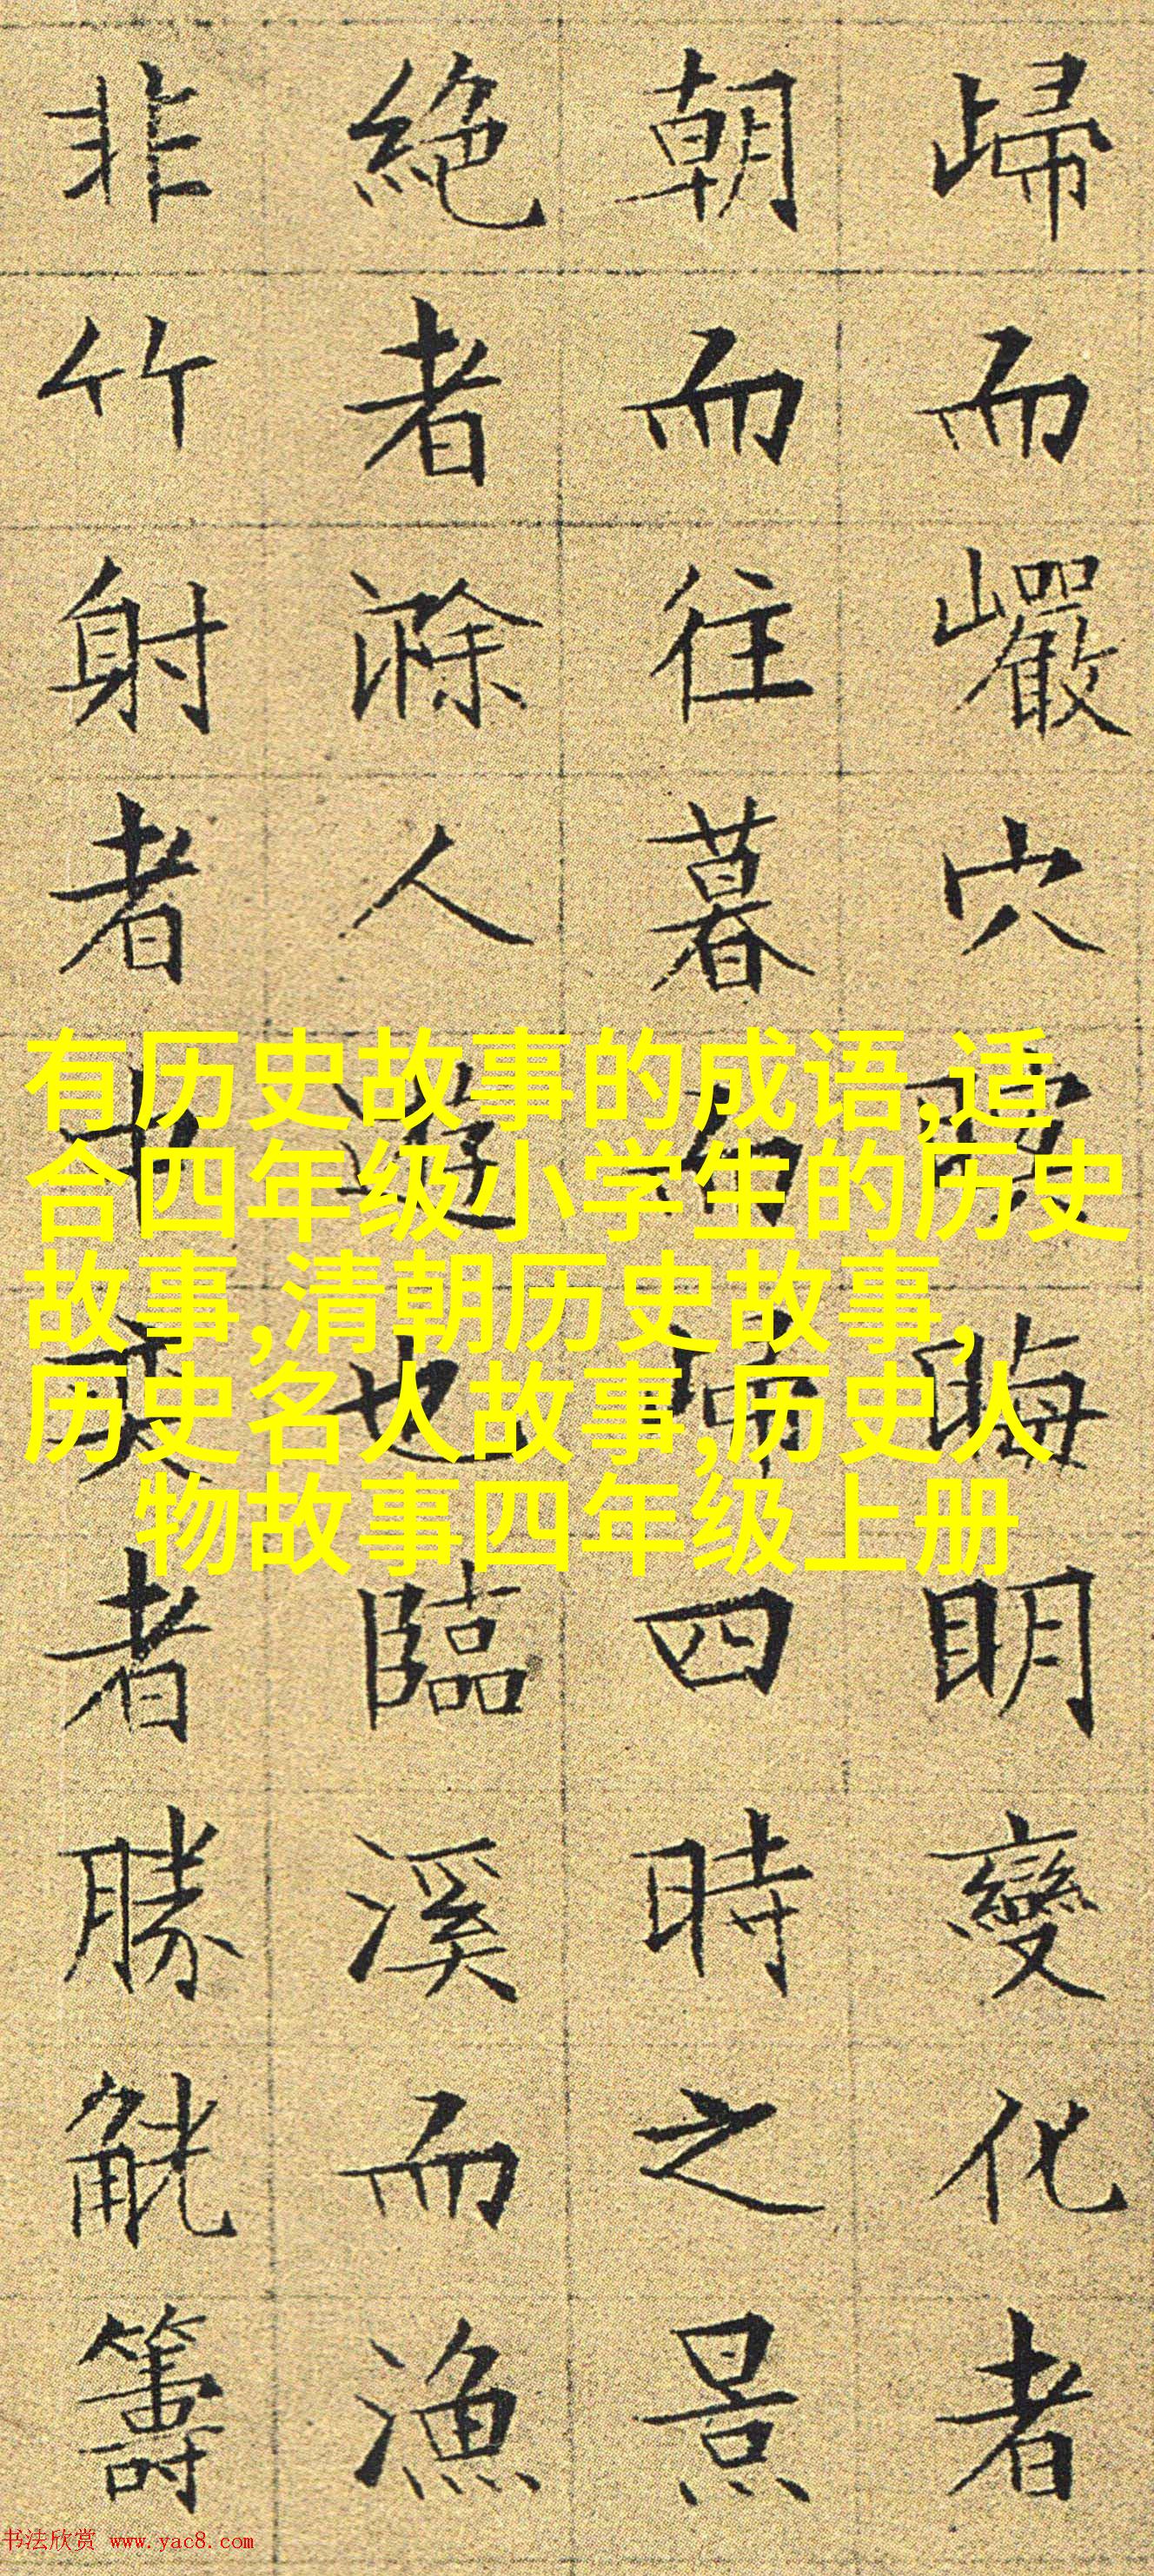 歸而巖穴暝晦明變化者
朝而往暮而歸四時之景
絕者滁人遊也臨溪而漁
非竹射者中奕者勝觥籌
有历史故事的成语,适
合四年级小学生的历史
故事,清朝历史故事,
历史名人故事,历史人
物故事四年级上册
书法欣赏 www.yac8.com